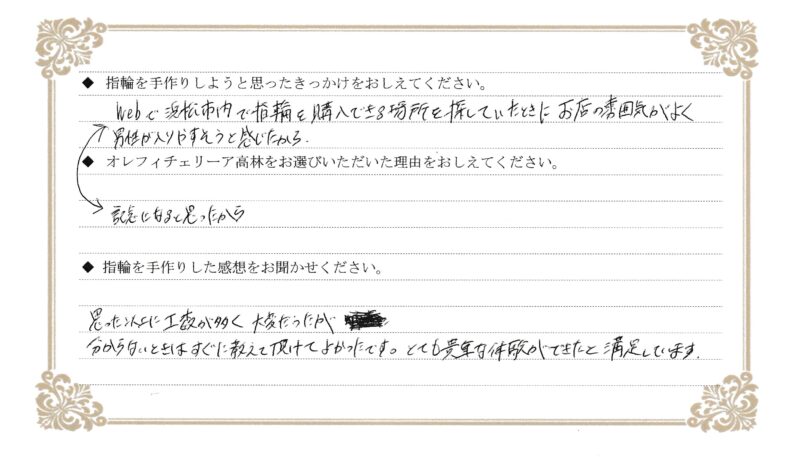 ◆ 指輪を手作りしようと思ったきっかけをおしえてください。
Webで浜松市内で指輪を購入できる場所を探していたときに お店の雰囲気がよく
男性が入りやすそうと感じたから.
◆ オレフィチェリーア高林をお選びいただいた理由をおしえてください。
記念になると思ったから
◆ 指輪を手作りした感想をお聞かせください。
思った以上に工数が多く 大変だったが
分からないときはすぐに教えて頂けてよかったです。とても貴重な体験ができたと満足しています.